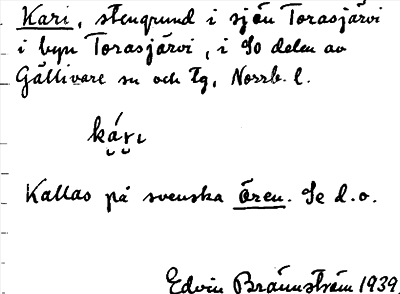 Kari, stengrund i sjön Torasjärvi
i byn Torasjärvi, i So delen av
Gällivare sn och tg, Norrb. l.
kárı
Kallas på svenska Ören. Se d.o.
Edvin Brännström 1939.